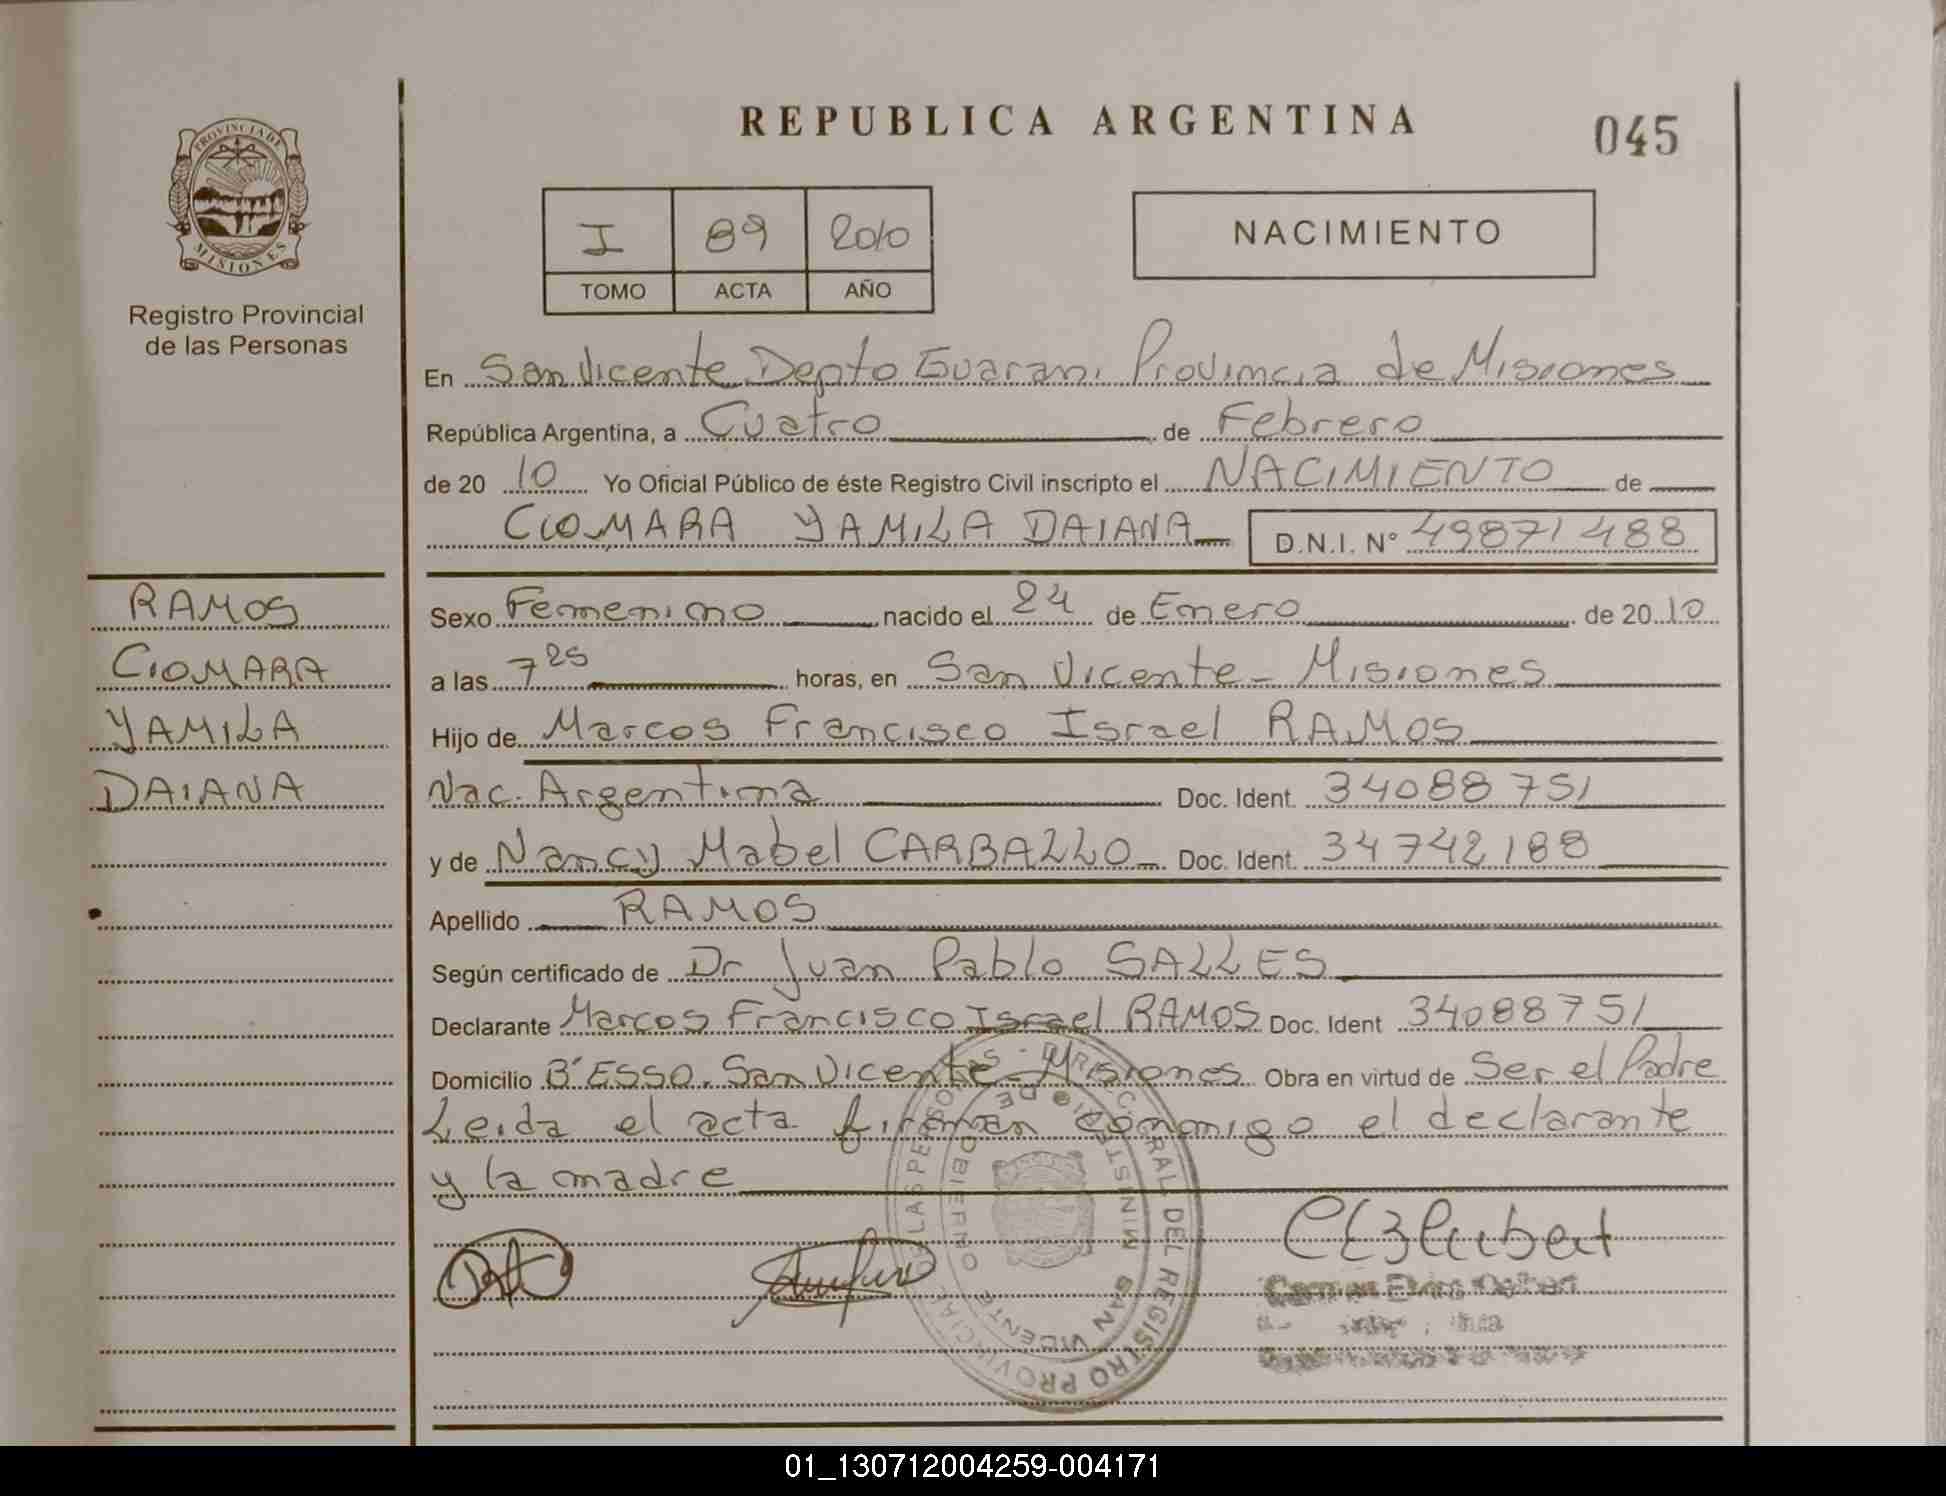 REPUBLICA ARGENTINA
045
PROVINCIA DE
MISIONES
Registro Provincial
de las Personas
I 89 2010
TOMO ACTA AÑO
NACIMIENTO
En San Vicente Depto Guarani Provincia de Misiones
República Argentina, a Cuatro de Febrero
de 20 10 Yo Oficial Público de éste Registro Civil inscripto el NACIMIENTO de
CIOMARA YAMILA DAIANA D.N.I. N° 49871488
RAMOS
CIOMARA
YAMILA
DAIANA
Sexo Femenino nacido el 24 de Enero de 20 10
a las 7 25 horas, en San Vicente - Misiones
Hijo de Marcos Francisco Israel RAMOS
Nac. Argentina Doc. Ident. 34088751
y de Nancy Mabel CARBALLO Doc. Ident. 34742188
Apellido RAMOS
Según certificado de Dr Juan Pablo SALLES
Declarante Marcos Francisco Israel RAMOS Doc. Ident 34088751
Domicilio B° ESSO. San Vicente - Misiones Obra en virtud de Ser el Padre
Leida el acta firman conmigo el declarante
y la madre
DEL REGISTRO PROVINCIAL DE LAS PERSONAS
GOBIERNO
SAN VICENTE
01_130712004259-004171